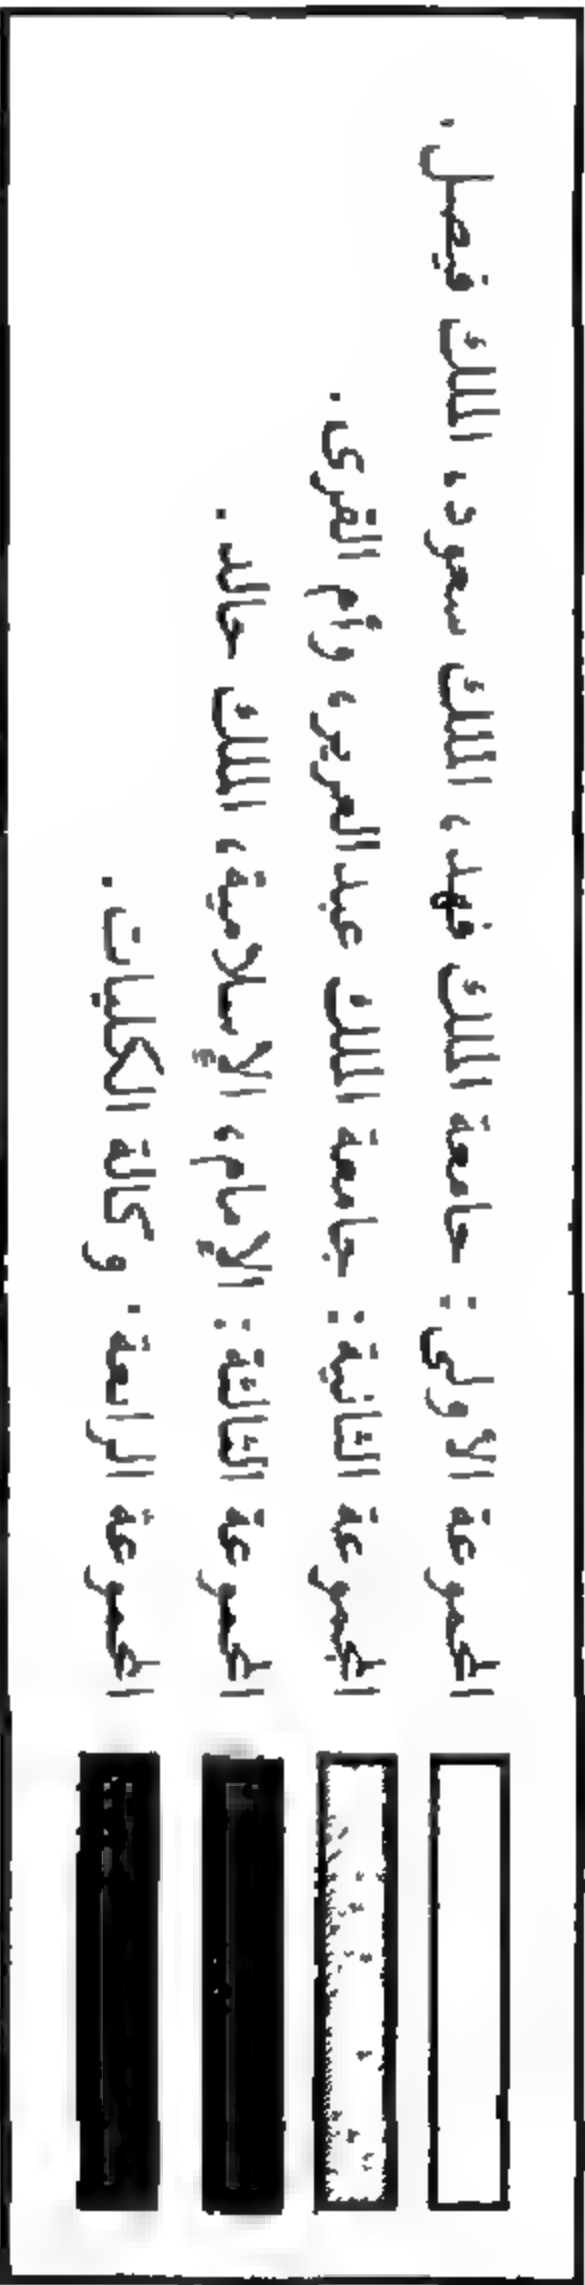 المجموعة الأولى: جامعة الملك فهد، الملك سعود، الملك فيصل.
المجموعة الثانية: جامعة الملك عبدالعزيز، وأم القرى.
المجموعة الثالثة: الإمام، الإسلامية، الملك خالد.
المجموعة الرابعة: وكالة الكليات.